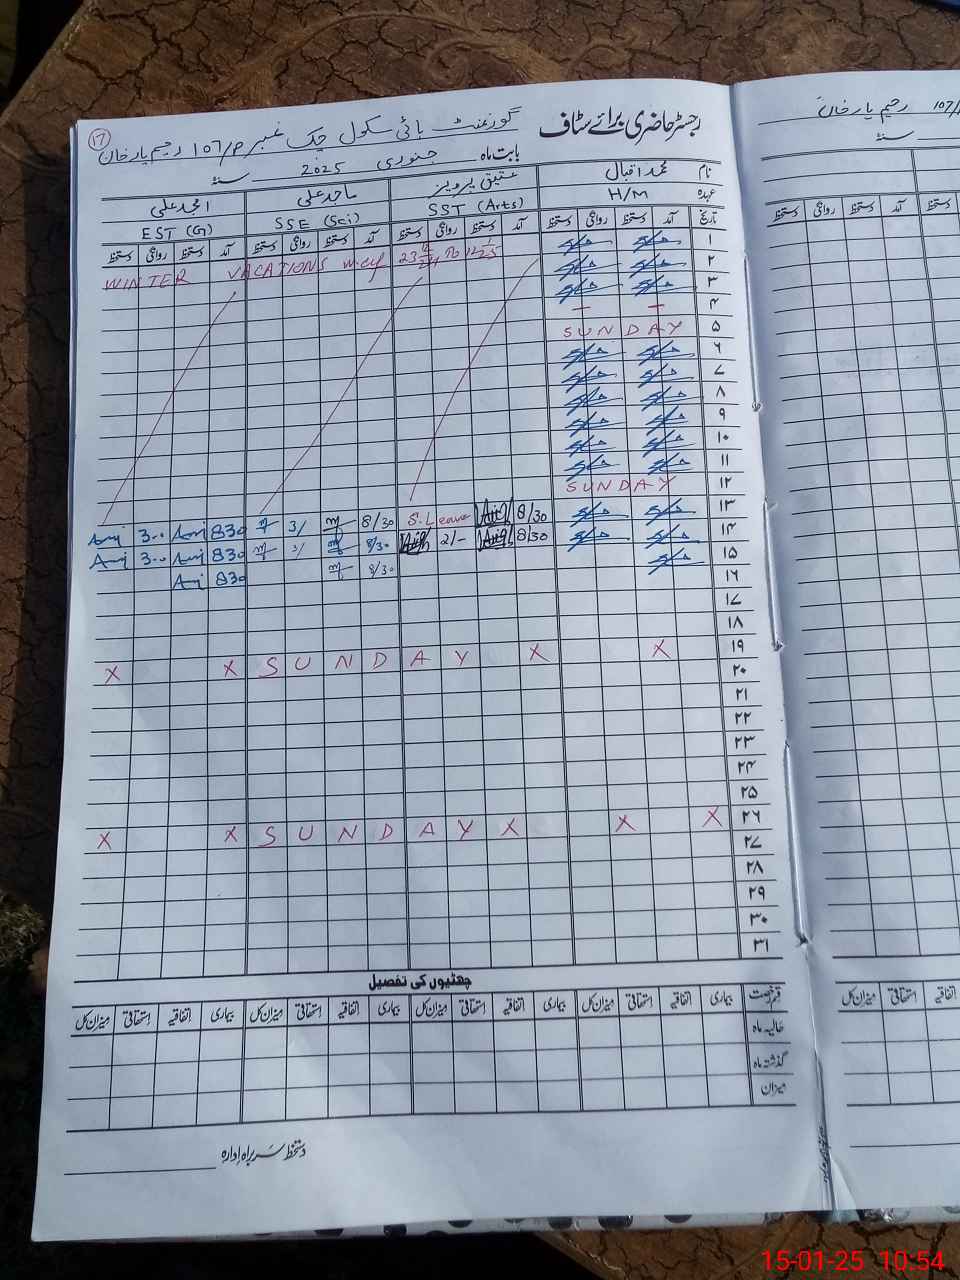 رجسٹر حاضری برائے سٹاف
گورنمنٹ ہائی سکول چک نمبر 107/P رحیم یار خان
۱۷
بابت ماہ جنوری 2025 سنہ
نام محمد اقبال عتیق پرویز ساجد علی امجد علی
عہدہ H/M SST (Arts) SSE (Sci) EST (G)
تاریخ آمد دستخط روانگی دستخط آمد دستخط روانگی دستخط آمد دستخط روانگی دستخط آمد دستخط روانگی دستخط
WINTER VACATIONS w.e.f 23 12/24 To 12 1/25
۱
۲
۳
۴
۵ SUNDAY
۶
۷
۸
۹
۱۰
۱۱
۱۲ SUNDAY
۱۳ 8/30 S. Leave 8/30 3/ 830 3..
۱۴ 8/30 2/- 8/30 830 3..
۱۵ 8/30 830
۱۶
۱۷
۱۸
۱۹ X X SUNDAY X X
۲۰
۲۱
۲۲
۲۳
۲۴
۲۵
۲۶ X X SUNDAY X X X
۲۷
۲۸
۲۹
۳۰
۳۱
چھٹیوں کی تفصیل
قسم رخصت بیماری اتفاقیہ استحقاقی میزان کل بیماری اتفاقیہ استحقاقی میزان کل بیماری اتفاقیہ استحقاقی میزان کل بیماری اتفاقیہ استحقاقی میزان کل
حالیہ ماہ
گذشتہ ماہ
میزان
دستخط سربراہ ادارہ
107/ رحیم یار خان
سنہ
دستخط روانگی دستخط آمد دستخط
میزان کل استحقاقی اتفاقیہ
15-01-25 10:54